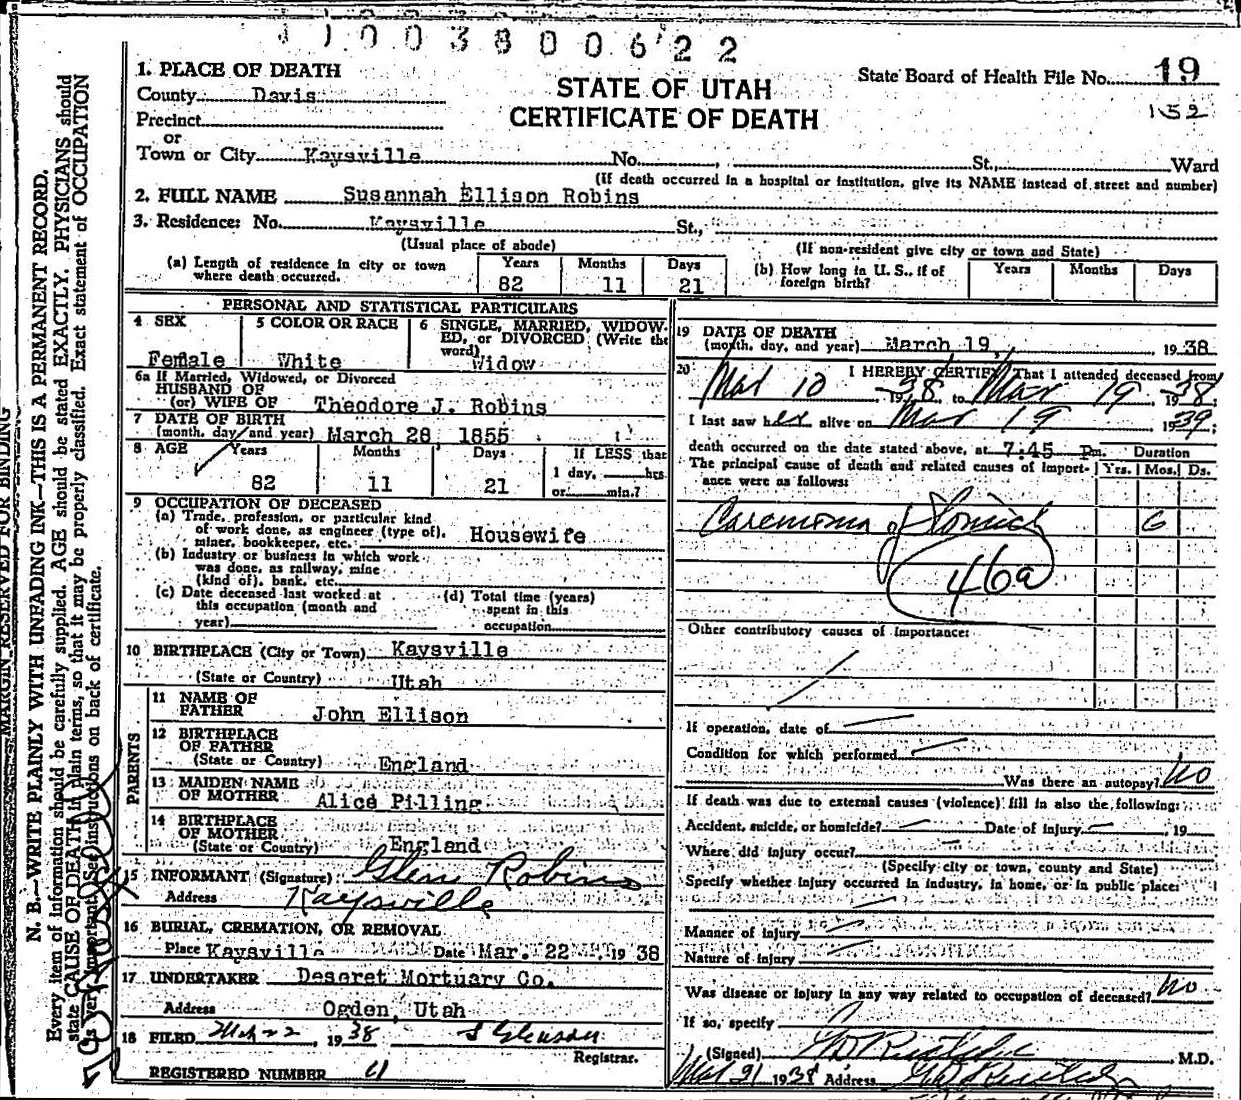 1003800622
1. PLACE OF DEATH
STATE OF UTAH
CERTIFICATE OF DEATH
State Board of Health File No. 19
152
County Davis
Precinct
or
Town or City Kaysville No. , St., Ward
(If death occurred in a hospital or institution, give its NAME instead of street and number)
2. FULL NAME Susannah Ellison Robins
3. Residence: No. Kaysville St.,
(Usual place of abode) (If non-resident give city or town and State)
(a) Length of residence in city or town where death occurred. Years 82 Months 11 Days 21
(b) How long in U. S., if of foreign birth? Years Months Days
PERSONAL AND STATISTICAL PARTICULARS
4 SEX Female
5 COLOR OR RACE White
6 SINGLE, MARRIED, WIDOWED, or DIVORCED (Write the word) Widow
6a If Married, Widowed, or Divorced
HUSBAND OF
(or) WIFE OF Theodore J. Robins
7 DATE OF BIRTH
(month, day, and year) March 28, 1855
8 AGE Years 82 Months 11 Days 21 If LESS than 1 day, hrs. or min.?
9 OCCUPATION OF DECEASED
(a) Trade, profession, or particular kind
of work done, as engineer (type of),
miner, bookkeeper, etc. Housewife
(b) Industry or business in which work
was done, as railway, mine
(kind of), bank, etc.
(c) Date deceased last worked at
this occupation (month and
year)
(d) Total time (years)
spent in this
occupation
10 BIRTHPLACE (City or Town) Kaysville
(State or Country) Utah
PARENTS
11 NAME OF
FATHER John Ellison
12 BIRTHPLACE
OF FATHER
(State or Country) England
13 MAIDEN NAME
OF MOTHER Alice Pilling
14 BIRTHPLACE
OF MOTHER
(State or Country) England
15 INFORMANT (Signature) Glen Robins
Address Kaysville
16 BURIAL, CREMATION, OR REMOVAL
Place Kaysville Date Mar. 22 19 38
17 UNDERTAKER Deseret Mortuary Co.
Address Ogden, Utah
18 FILED Mar 22, 1938
Registrar.
REGISTERED NUMBER 11
19 DATE OF DEATH
(month, day, and year) March 19, 1938
20 I HEREBY CERTIFY That I attended deceased from
Mar 10, 1938, to Mar 19 1938
I last saw her alive on Mar 19 1939;
death occurred on the date stated above, at 7:45 Pm. Duration
The principal cause of death and related causes of importance were as follows: Yrs. Mos. Ds.
Carcinoma of Stomach 6
46a
Other contributory causes of importance:
If operation, date of
Condition for which performed
Was there an autopsy? No
If death was due to external causes (violence) fill in also the following:
Accident, suicide, or homicide? Date of injury , 19
Where did injury occur?
(Specify city or town, county and State)
Specify whether injury occurred in industry, in home, or in public place:
Manner of injury
Nature of injury
Was disease or injury in any way related to occupation of deceased? No
If so, specify
(Signed) , M.D.
Mar 21 1938 Address
MARGIN RESERVED FOR BINDING
N. B.—WRITE PLAINLY WITH UNFADING INK—THIS IS A PERMANENT RECORD.
Every item of information should be carefully supplied. AGE should be stated EXACTLY. PHYSICIANS should
state CAUSE OF DEATH in plain terms, so that it may be properly classified. Exact statement of OCCUPATION
is very important. See instructions on back of certificate.